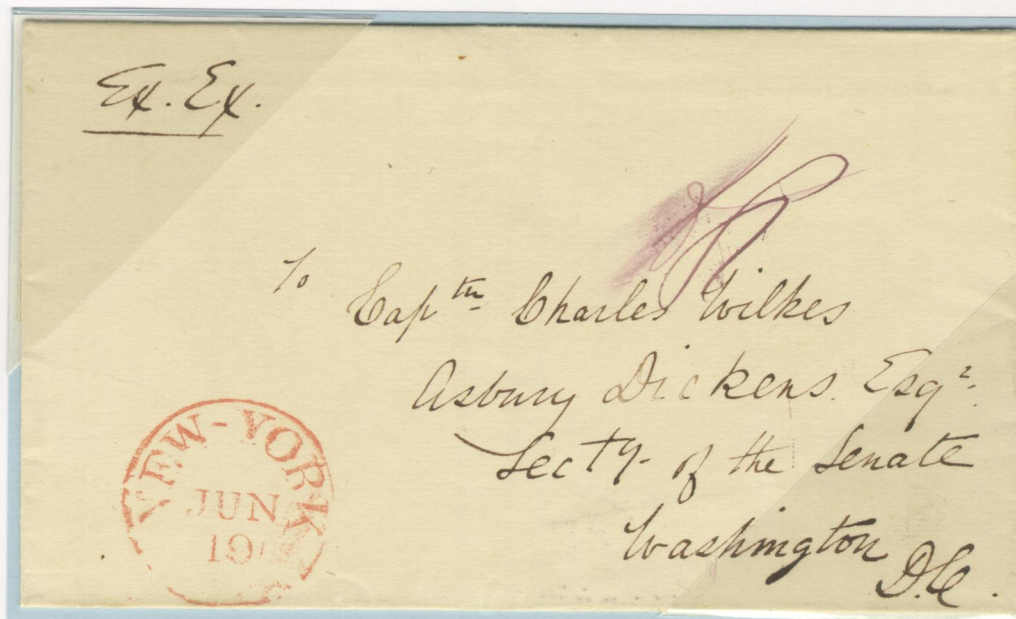 Ex. Ex.
To
Captn Charles Wilkes
Asbury Dickens. Esqr.
Secty. of the Senate
Washington
D.C.
NEW-YORK
JUN
19